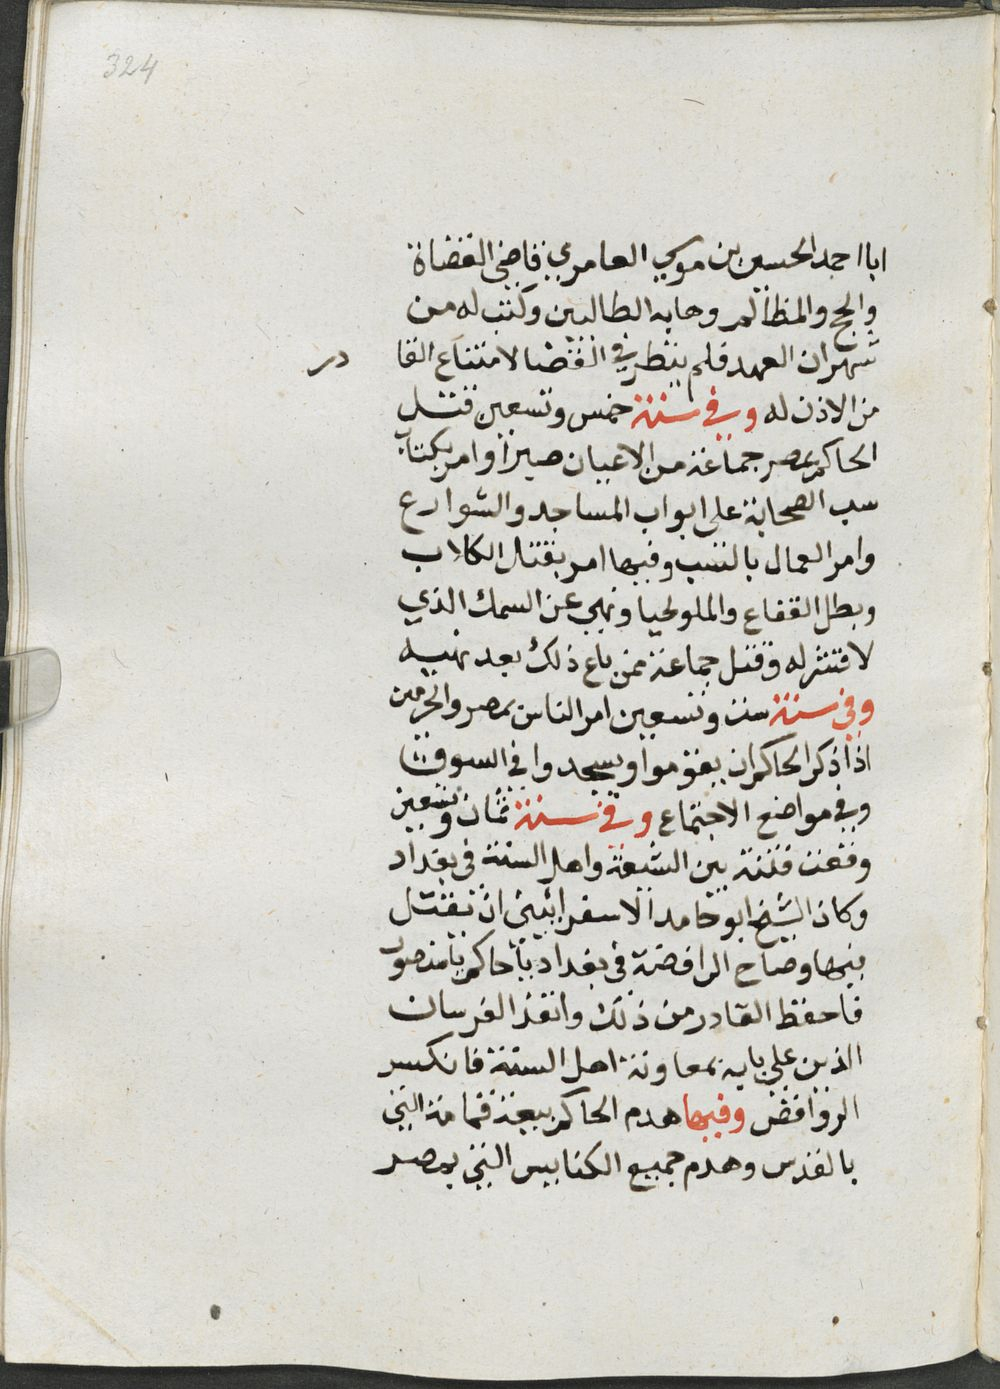 324
ابا احمد الحسين بن موسي العامري قاضي القضاة
والحج والمظالم وهابه الطالبين وكتب له من
شهران العهد فلم ينظر في القضا لامتناع القا در
من الاذن له وفي سنة خمس وتسعين قتل
الحاكم بمصر جماعة من الاعيان صبرا وامر بكتاب
سب الصحابة على ابواب المساجد والشوارع
وامر العمال بالسب وفيها امر بقتل الكلاب
وبطل الفقاع والملوخيا ونهي عن السمك الذي
لا قشر له وقتل جماعة ممن باع ذلك بعد نهيه
وفي سنة ست وتسعين امر الناس بمصر والحرمين
اذا ذكر الحاكم ان يقوموا ويسجدوا في السوق
وفي مواضع الاجتماع وفي سنة ثمان وتسعين
وقعت فتنة بين الشيعة واهل السنة في بغداد
وكاد الشيخ ابو حامد الاسفرايني ان تقتل
فيها وصاح الرافضة في بغداد يا حاكم يا منصور
فاحفظ القادر من ذلك وانفذ الفرسان
الذين علي بابه بمعاونة اهل السنة فانكسر
الروافض وفيها هدم الحاكم بيعة قمامة التي
بالقدس وهدم جميع الكنايس التي بمصر